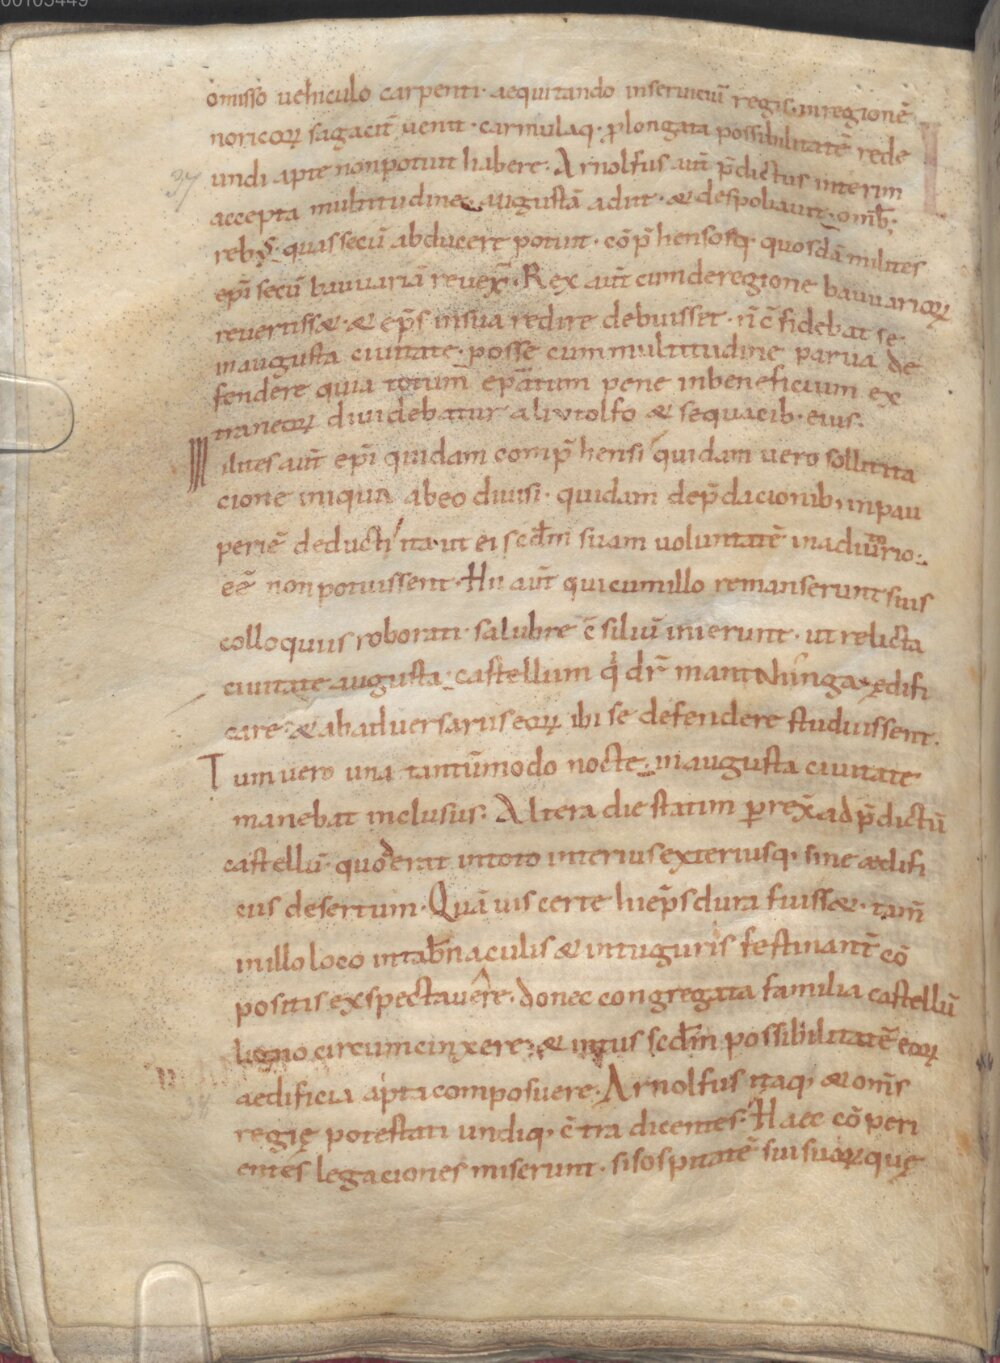 00103449
omisso uehiculo carpenti· aequitando inseruiciū regis· inregionē
noricoꝝ sagacit̄ uenit· carmulaq· ꝓlongata possibilitatē rede
undi apte nonpotuit habere· Arnolfus aut̄ p̄dictus interim
37
accepta multitudine· augustā adiit· & despoliauit· omīb;
reb; quas secū abducere potuit· cōp̄hensosq· quosdā milites
ep̄i secū bauuariā reuex̄· Rex aut̄ cum deregione bauuaricoꝝ
reuertiss&· & ep̄s insua redire debuisset· n̄c̄ fidebat se
inaugusta ciuitate· posse cum multitudine parua de
fendere quia totum ep̄atum pene inbeneficium ex
traneoꝝ diuidebatur a liutolfo & sequacib· eius·
Milites aut̄ ep̄i quidam comp̄hensi quidam uero sollicita
cione iniqua abeo diuisi· quidam dep̄dacionib; inpau
periē deducti ita ut ei scd̄m suam uoluntatē inadiutorio
eē non potuissent· Hii aut̄ qui cumillo remanserunt suis
colloquiis roborati· salubre c̄siliū inierunt· ut relicta
ciuitate augusta· castellum qd̄ dr̄ mantahinga· ędifi
care· & abaduersariis eoꝝ ibi se defendere studuissent·
Tum uero una tantūmodo nocte· inaugusta ciuitate
manebat inclusus· Altera die statim ꝑrex̄ ad p̄dictū
castellū· quod erat intoto interius exteriusq· sine aedifi
ciis desertum· Quāuis certe hiēps dura fuiss&· tam̄
inillo loco intab̄naculis & intuguriis festinant̄ cō
positis exspectauêre· donec congregata familia castellū
ligno circumcinxere· & intus scd̄m possibilitatē eoꝝ
aedificia apta composuere· Arnolfus itaq· & om̄s
38
regię potestati undiq· c̄tradicentes· Haec cōperi
entes legaciones miserunt· si sospitatē sui suoꝝquę